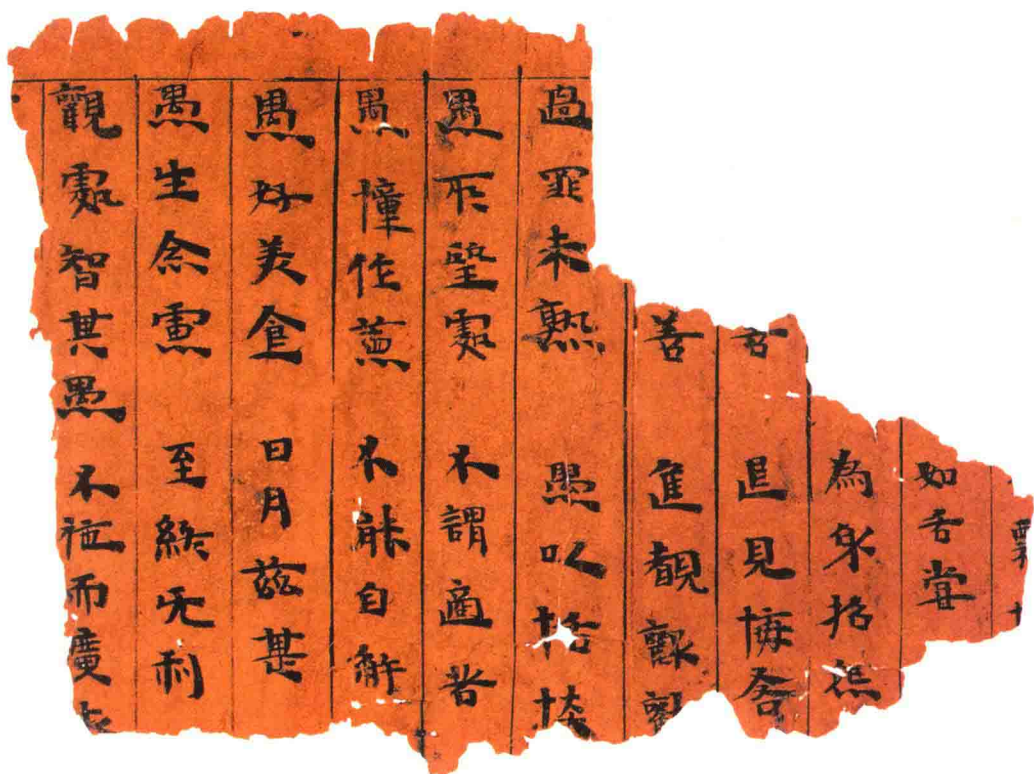 如舌嘗
為身招患
善 退見悔吝
善 進觀歡
過罪未熟 愚以恬惔
愚所望處 不謂適苦
愚憧作惡 不能自解
愚好美食 日月茲甚
愚生念慮 至終无利
觀處智其愚 不施而廣求